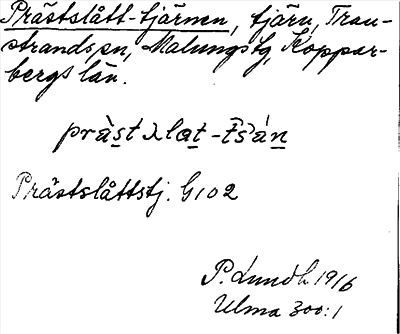 Prästslått-tjärnen, tjärn, Tran-
strands sn, Malungs tg, Koppar-
bergs län.
Prästslåttstj. G102
P. Lundh 1916
Ulma 300:1